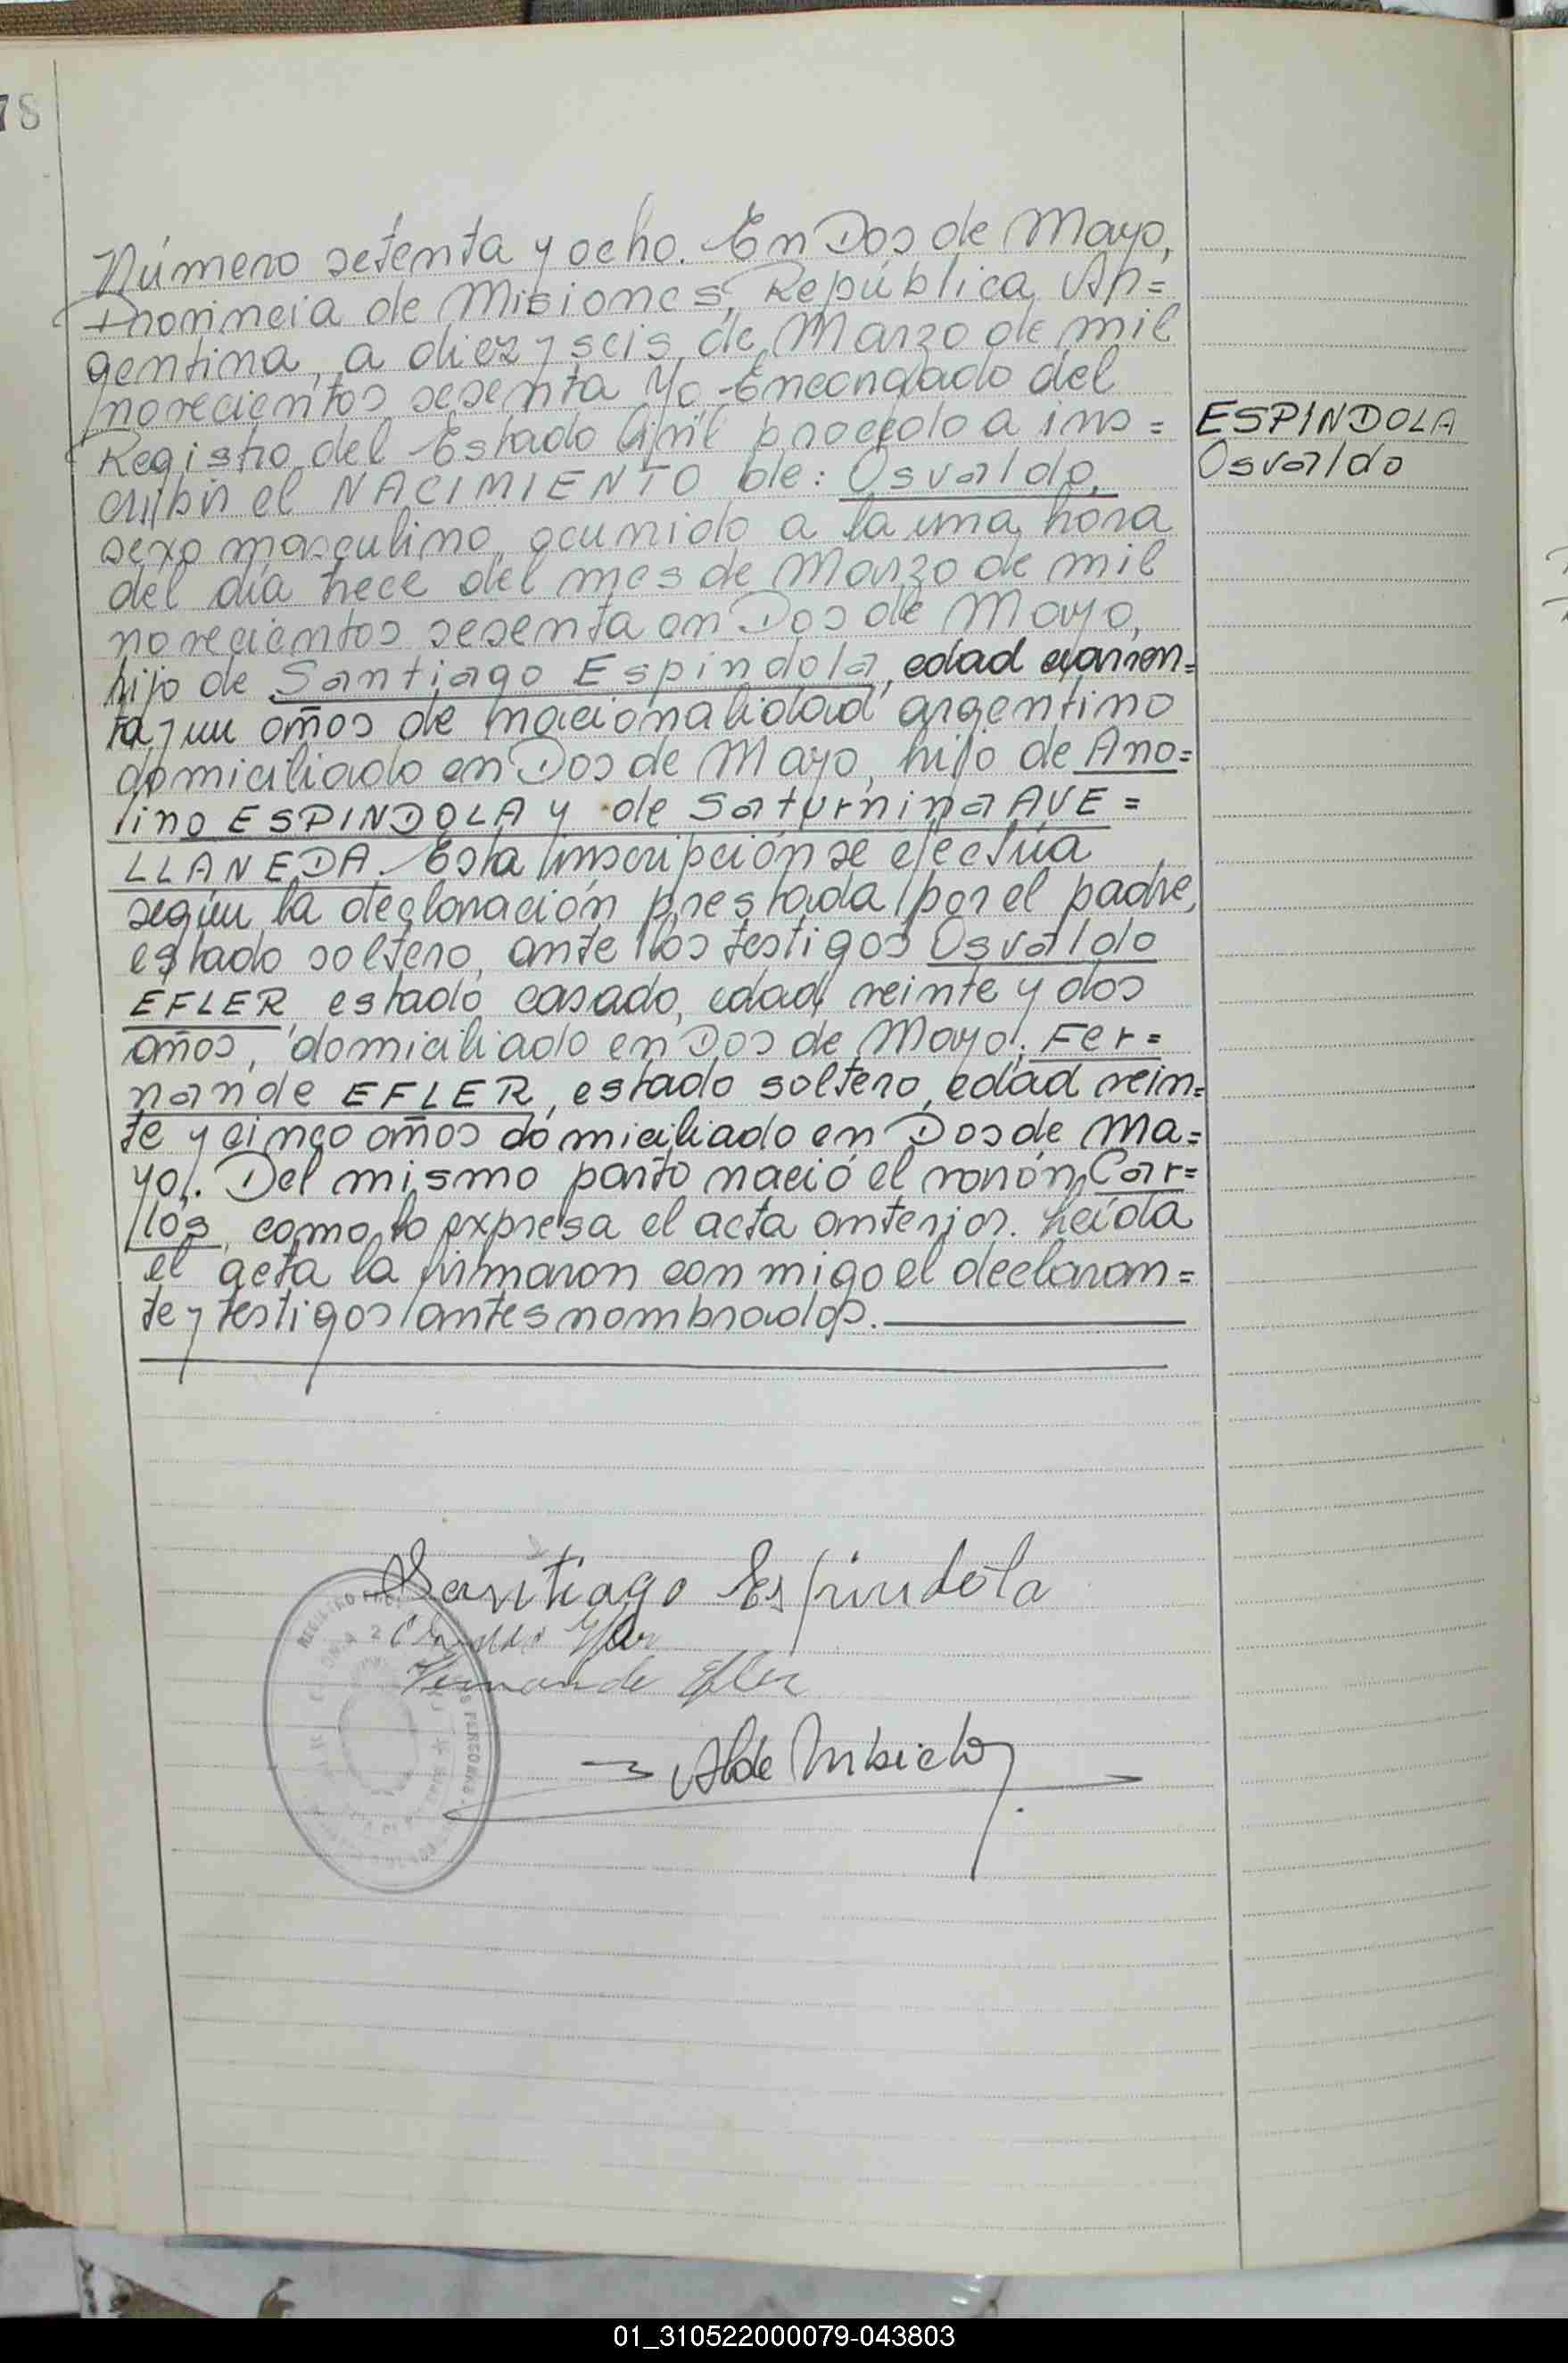 78
Número setenta y ocho. En Dos de Mayo,
Provincia de Misiones, República Ar=
gentina, a diez y seis de Marzo de mil
novecientos sesenta Yo Encargado del
Registro del Estado Civil procedo a ins=
cribir el NACIMIENTO de: Osvaldo,
sexo masculino, ocurrido a la una hora
del día trece del mes de Marzo de mil
novecientos sesenta en Dos de Mayo,
hijo de Santiago Espindola, edad cuaren=
ta y un años de nacionalidad argentino
domiciliado en Dos de Mayo, hijo de Ano=
lino ESPINDOLA y de Saturnina AVE=
LLANEDA. Esta inscripción se efectúa
según la declaración prestada por el padre,
estado soltero, ante los testigos Osvaldo
EFLER estado casado, edad veinte y dos
años, domiciliado en Dos de Mayo; Fer=
nande EFLER, estado soltero, edad vein=
te y cinco años domiciliado en Dos de Ma=
yo. Del mismo parto nació el varón Car=
los, como lo expresa el acta anterior. Leída
el acta la firmaron conmigo el declaran=
te y testigos antes nombrados.
ESPINDOLA
Osvaldo
Santiago Espindola
Fernande Efler
01_310522000079-043803